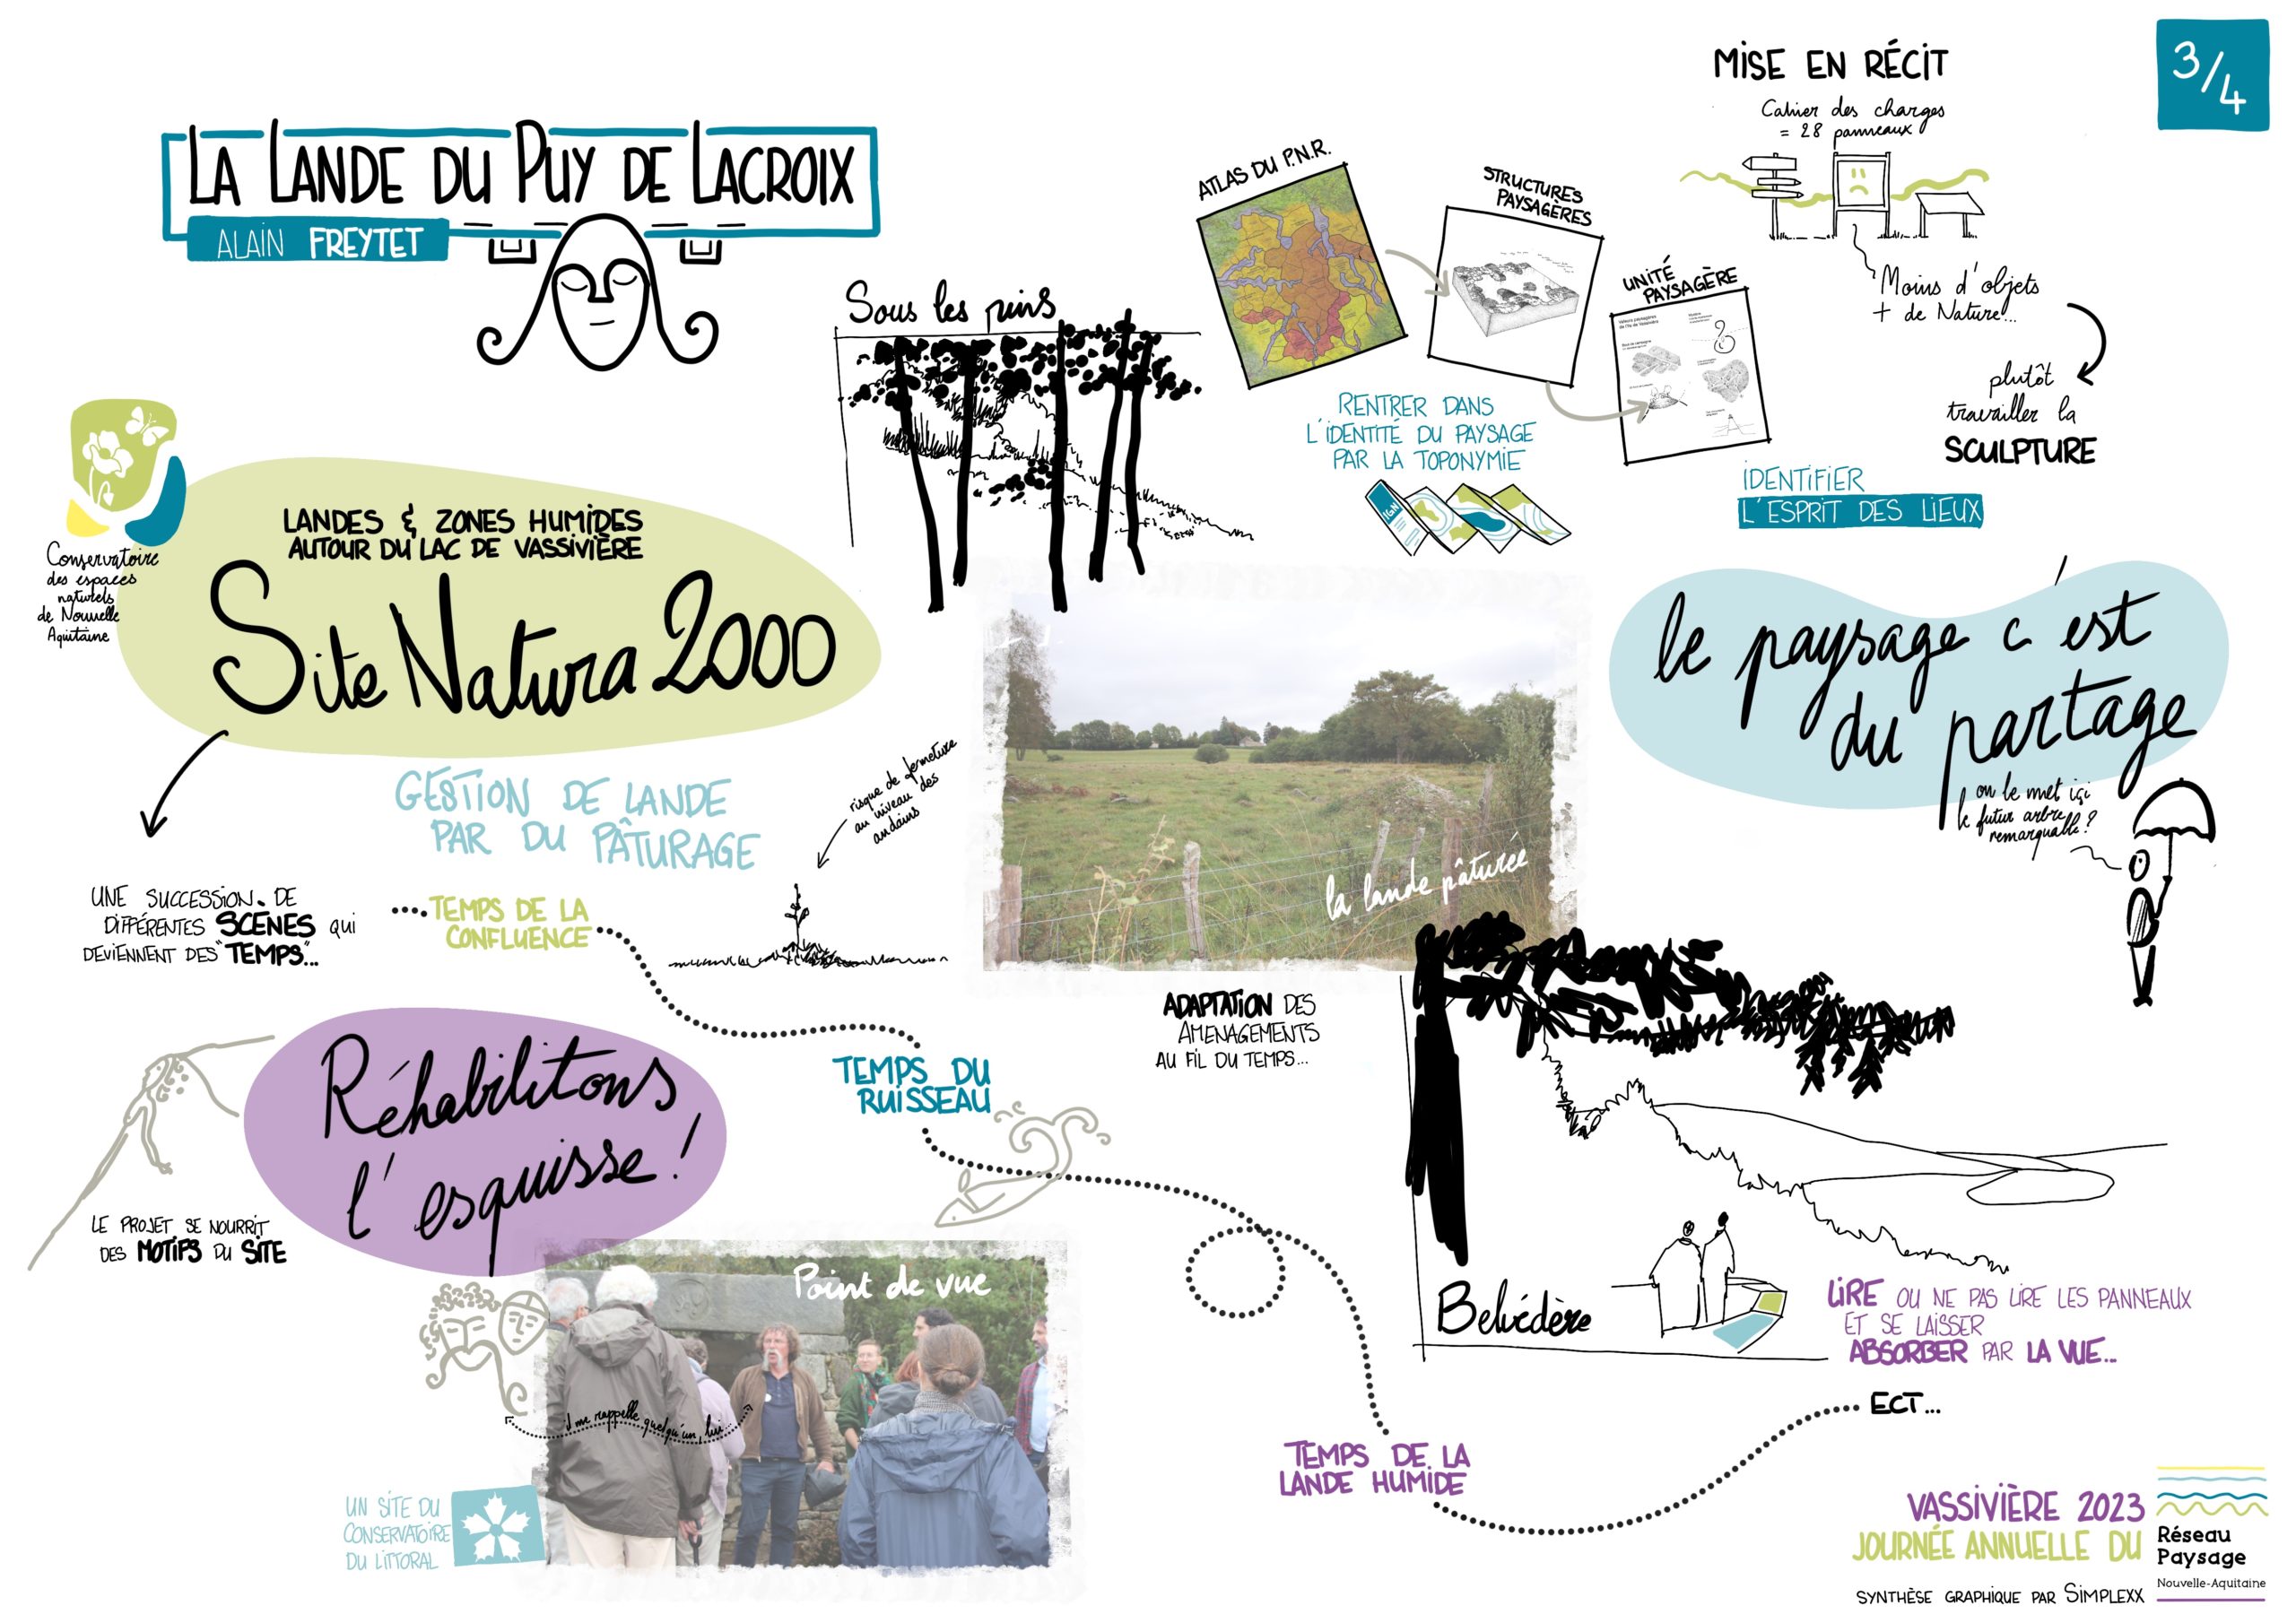 3/4
LA LANDE DU PUY DE LACROIX
ALAIN FREYTET
MISE EN RÉCIT
Cahier des charges
= 28 panneaux
Moins d'objets
+ de Nature...
plutôt
travailler la
SCULPTURE
ATLAS DU P.N.R.
STRUCTURES
PAYSAGÈRES
UNITÉ
PAYSAGÈRE
RENTRER DANS
L'IDENTITÉ DU PAYSAGE
PAR LA TOPONYMIE
IGN
IDENTIFIER
L'ESPRIT DES LIEUX
Sous les pins
Conservatoire
des espaces
naturels
de Nouvelle
Aquitaine
LANDES & ZONES HUMIDES
AUTOUR DU LAC DE VASSIVIÈRE
Site Natura 2000
le paysage c'est
du partage
on le met içi
le futur arbre
remarquable?
GESTION DE LANDE
PAR DU PÂTURAGE
risque de fermeture
au niveau des
andains
la lande pâturée
UNE SUCCESSION DE
DIFFÉRENTES SCENES QUI
DEVIENNENT DES "TEMPS"...
TEMPS DE LA
CONFLUENCE
ADAPTATION DES
AMENAGEMENTS
AU FIL DU TEMPS...
TEMPS DU
RUISSEAU
Réhabilitons
l'esquisse!
LE PROJET SE NOURRIT
DES MOTIFS DU SITE
Point de vue
il me rappelle quelqu'un, lui
UN SITE DU
CONSERVATOIRE
DU LITTORAL
Belvédère
LIRE OU NE PAS LIRE LES PANNEAUX
ET SE LAISSER
ABSORBER PAR LA VUE...
ECT...
TEMPS DE LA
LANDE HUMIDE
VASSIVIÈRE 2023
JOURNÉE ANNUELLE DU
Réseau
Paysage
Nouvelle-Aquitaine
SYNTHÈSE GRAPHIQUE PAR SIMPLEXX